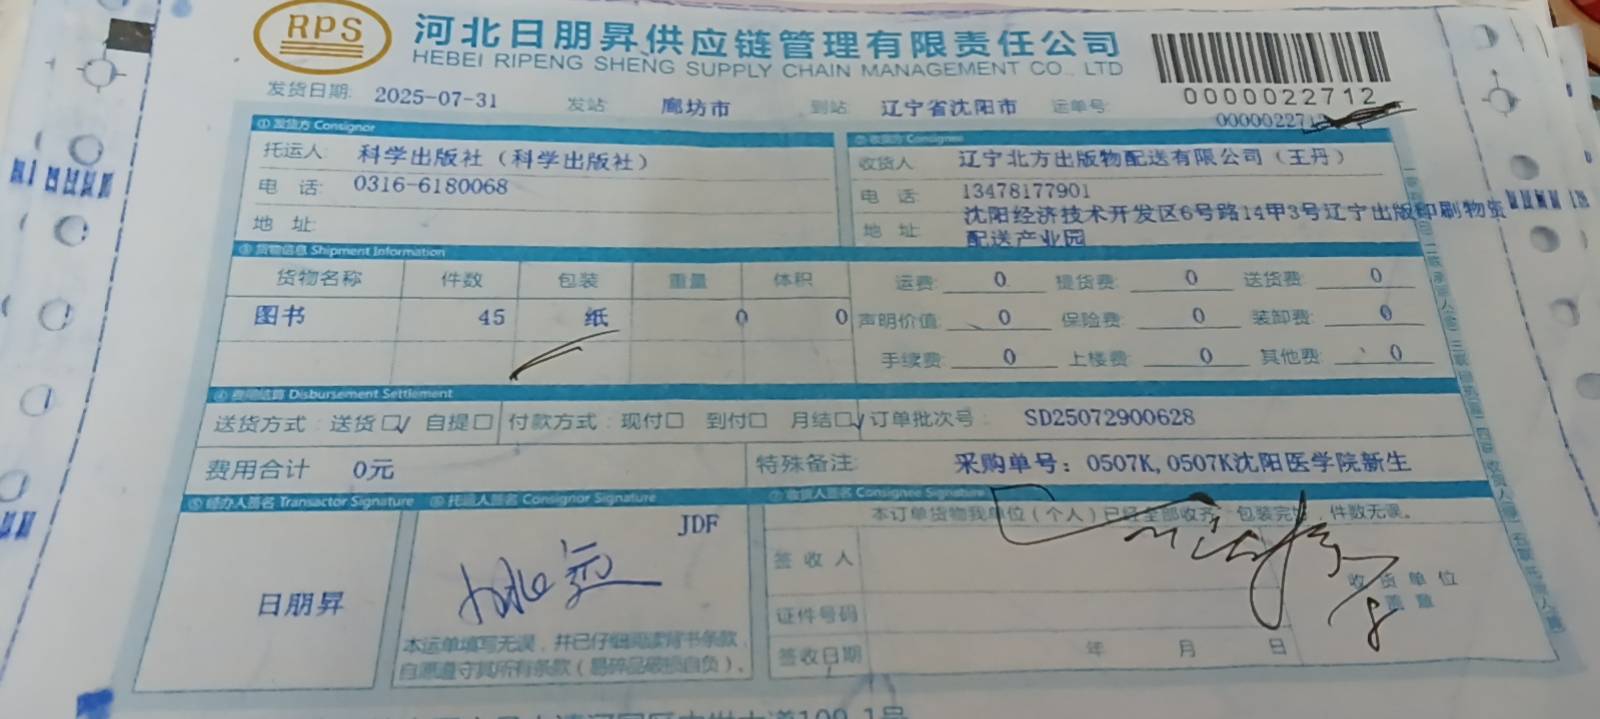 RPS
河北日朋昇供应链管理有限责任公司
HEBEI RIPENG SHENG SUPPLY CHAIN MANAGEMENT CO., LTD
0000022712
发货日期: 2025-07-31 发站 廊坊市 到站 辽宁省沈阳市 运单号:
①发货方 Consignor
②收货方 Consignee
托运人: 科学出版社（科学出版社）
收货人 辽宁北方出版物配送有限公司（王丹）
电 话: 0316-6180068
电 话 13478177901
地 址:
地 址: 沈阳经济技术开发区6号路14甲3号辽宁出版印刷物资
配送产业园
③货物信息 Shipment Information
货物名称 件数 包装 重量 体积
运费: 0 提货费: 0 送货费: 0
图书 45 纸 0 0
声明价值: 0 保险费: 0 装卸费: 0
手续费: 0 上楼费: 0 其他费: 0
④费用结算 Disbursement Settlement
送货方式:送货☐✓ 自提☐ 付款方式:现付☐ 到付☐ 月结☐✓ 订单批次号: SD25072900628
费用合计 0元 特殊备注: 采购单号: 0507K,0507K沈阳医学院新生
⑤经办人签名 Transactor Signature ⑥托运人签名 Consignor Signature ⑦收货人签名 Consignee Signature
本订单货物我单位（个人）已经全部收齐,包装完好,件数无误。
JDF
签 收 人
日朋昇
收 货 单 位
盖 章
证件号码
本运单填写无误，并已仔细阅读背书条款，
自愿遵守其所有条款（易碎品破损自负）。
签收日期 年 月 日